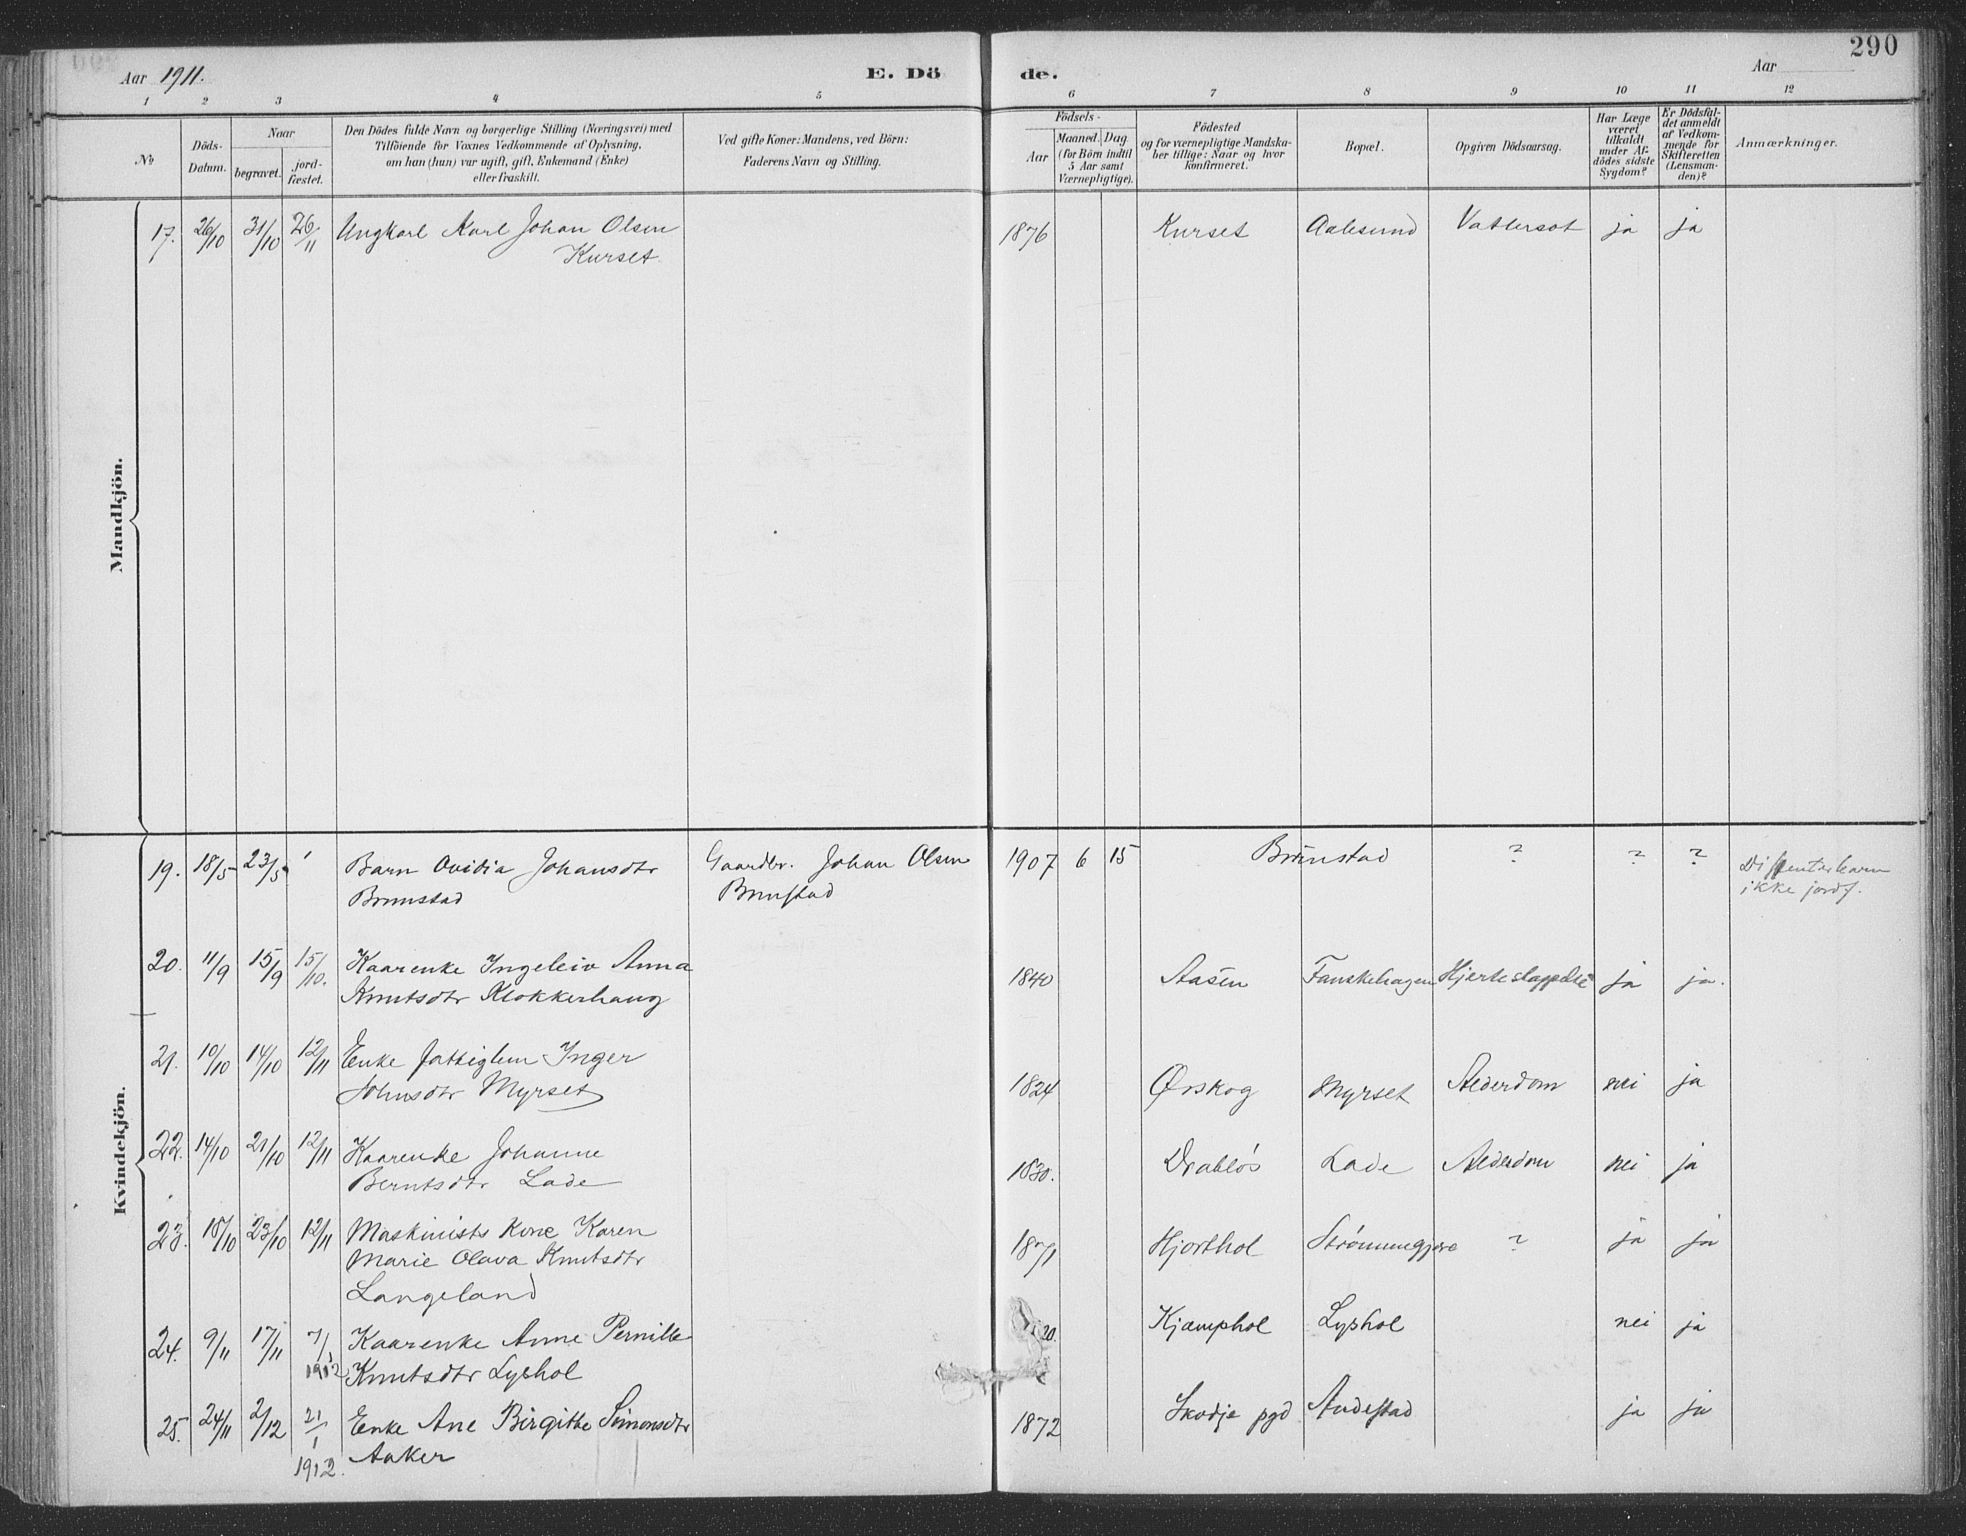 290
Aar 1911.
E. Dö
de.
Aar
1 2 3 4 5 6 7 8 9 10 11 12
No
Döds-
Datum.
Naar
begravet.
jord-
fæstet.
Den Dödes fulde Navn og borgerlige Stilling (Næringsvei) med
Tilföiende for Voxnes Vedkommende af Oplysning,
om han (hun) var ugift, gift, Enkemand (Enke)
eller fraskilt.
Ved gifte Koner: Mandens, ved Börn:
Faderens Navn og Stilling.
Födsels-
Aar
Maaned.
Dag
(for Börn indtil
5 Aar samt
Værnepligtige).
Födested
og for værnepligtige Mandska-
ber tillige: Naar og hvor
konfirmeret.
Bopæl.
Opgiven Dödsaarsag.
Har Læge
været
tilkaldt
under Af-
dödes sidste
Sygdom?
Er Dödsfal-
det anmeldt
af Vedkom-
mende for
Skifteretten
(Lensman-
den)?
Anmærkninger.
Mandkjön.
17. 26/10 31/10 26/11 Ungkarl Karl Johan Olsen 1876 Kurset Aalesund Vattersot ja ja
Kurset
Kvindekjön.
19. 18/5 23/5 Barn Ovidia Johansdtr Gaardbr. Johan Olsen 1907 6 15 Brünstad ? ? ? Dissenterbarn
Brunstad Brunstad ikke jordf.
20. 11/9 15/9 15/10. Kaarenke Ingeleiv Anna 1840 Aasen Fauskehagen ja ja.
Knutsdtr Klokkerhaug
21. 10/10 14/10 12/11 Enke fattiglem Inger
Johnsdtr Myrset 1824 Ørskog Myrset Alderdom nei ja
22. 14/10 21/10 12/11 Kaarenke Johanne 1830. Drabløs Lade Alderdom nei ja
Berntsdtr Lade
23. 18/10 23/10 12/11 Maskinists Kone Karen 1871 Hjorthol ? ja ja
Marie Olava Knutsdtr
Langeland
24. 9/11 17/11 7/1 Kaarenke Anne Pernille 20. Kjæmphol Lyshol nei ja
1912 Knutsdtr Lyshol
25. 24/11 2/12 21/1 Enke Ane Birgithe Simonsdtr 1872 Skodje pgd Andestad ja ja
1912. Aaker